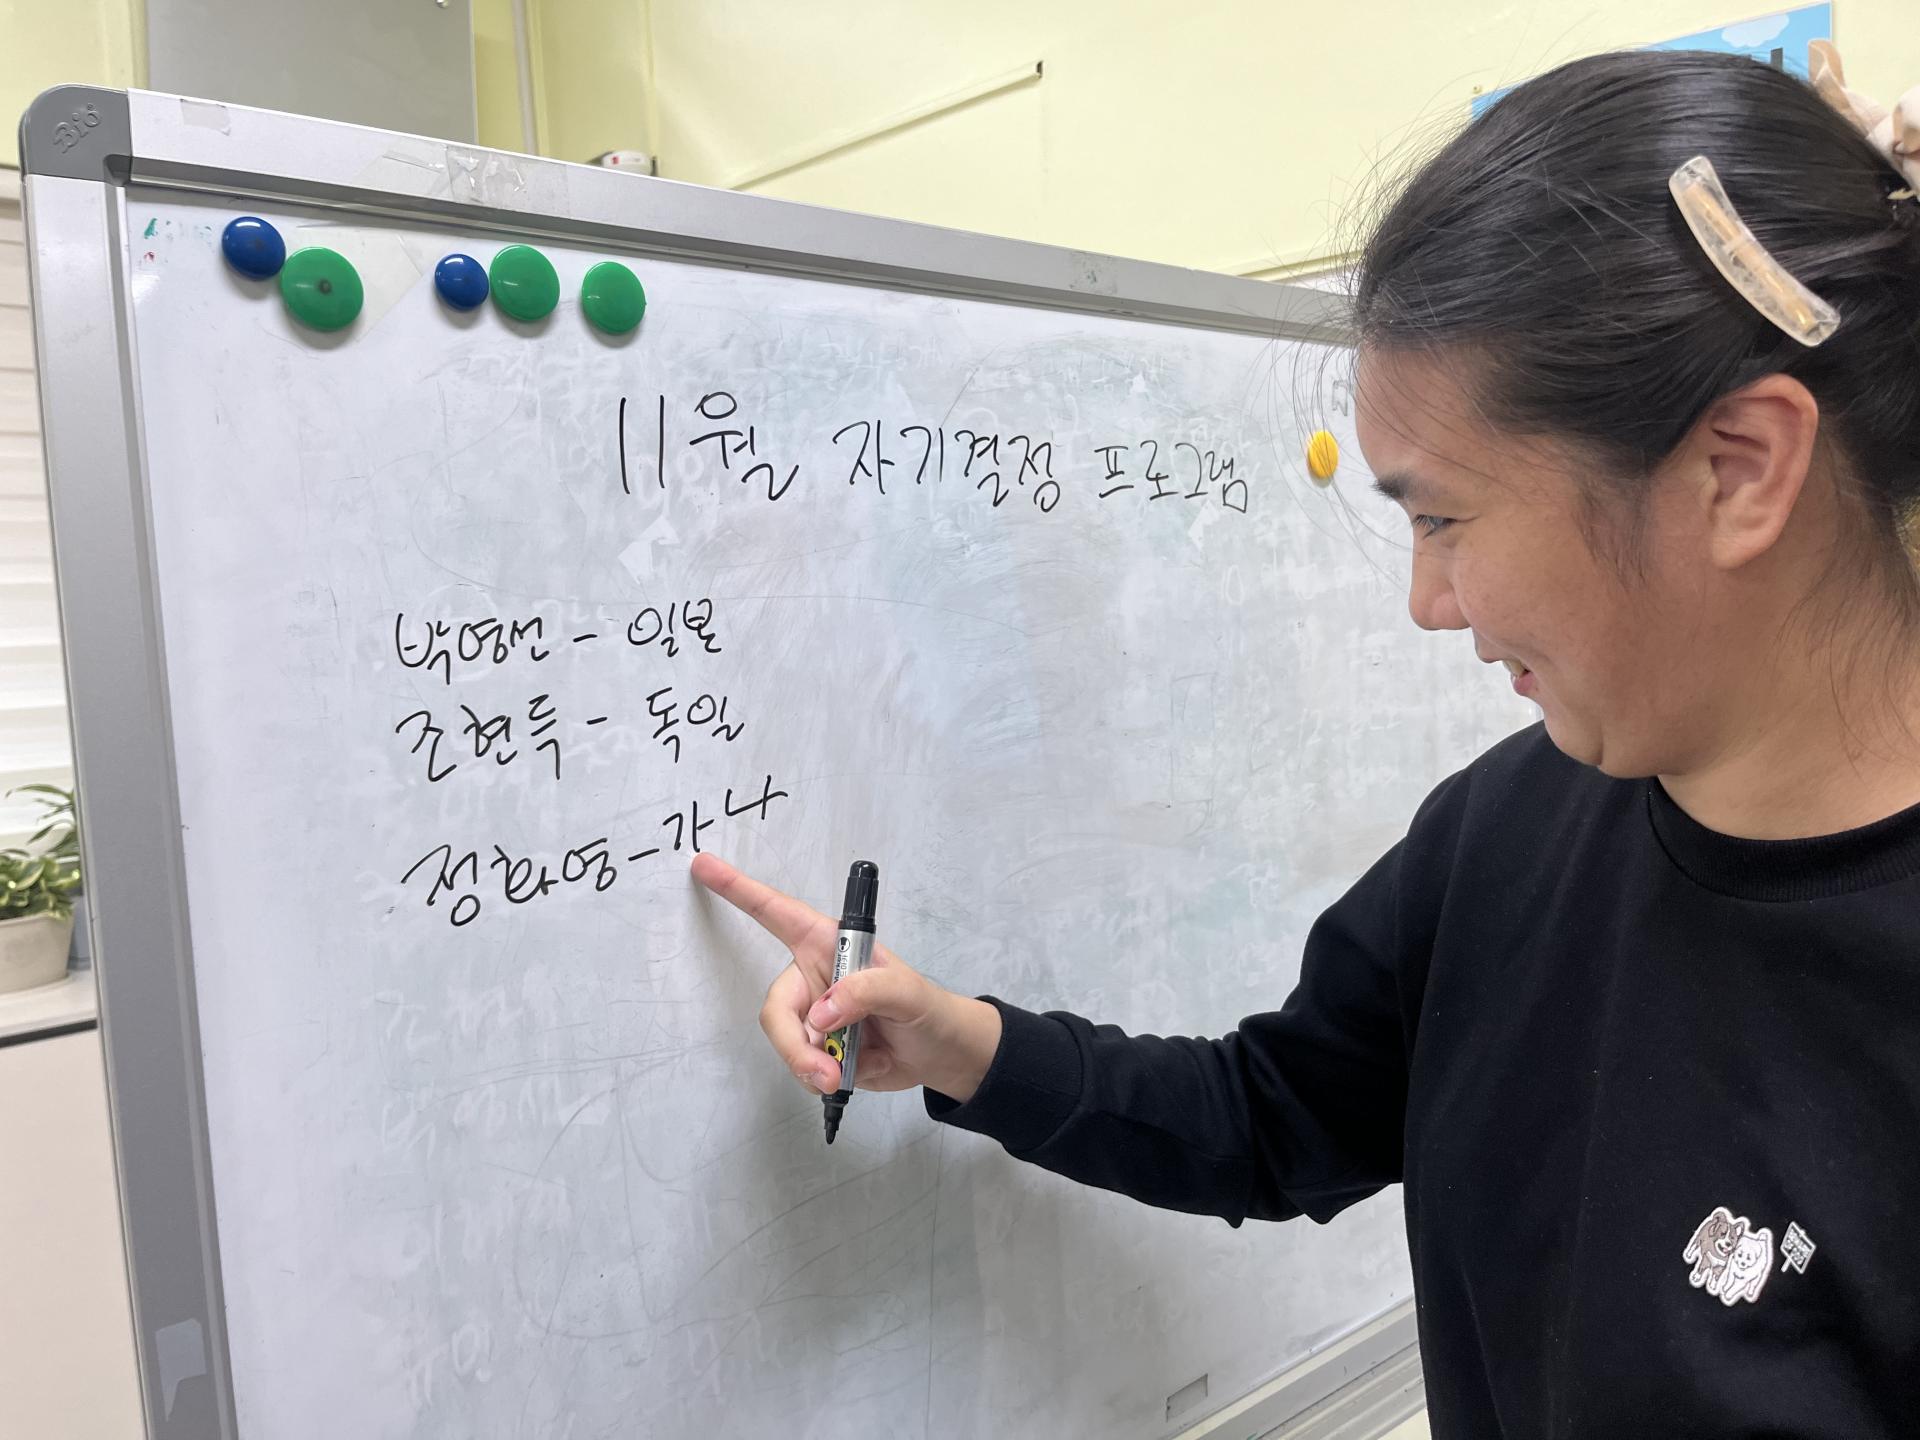 Bio
11월 자기결정 프로그램
박영선 - 일본
조현득 - 독일
정화영 - 가나
Marker